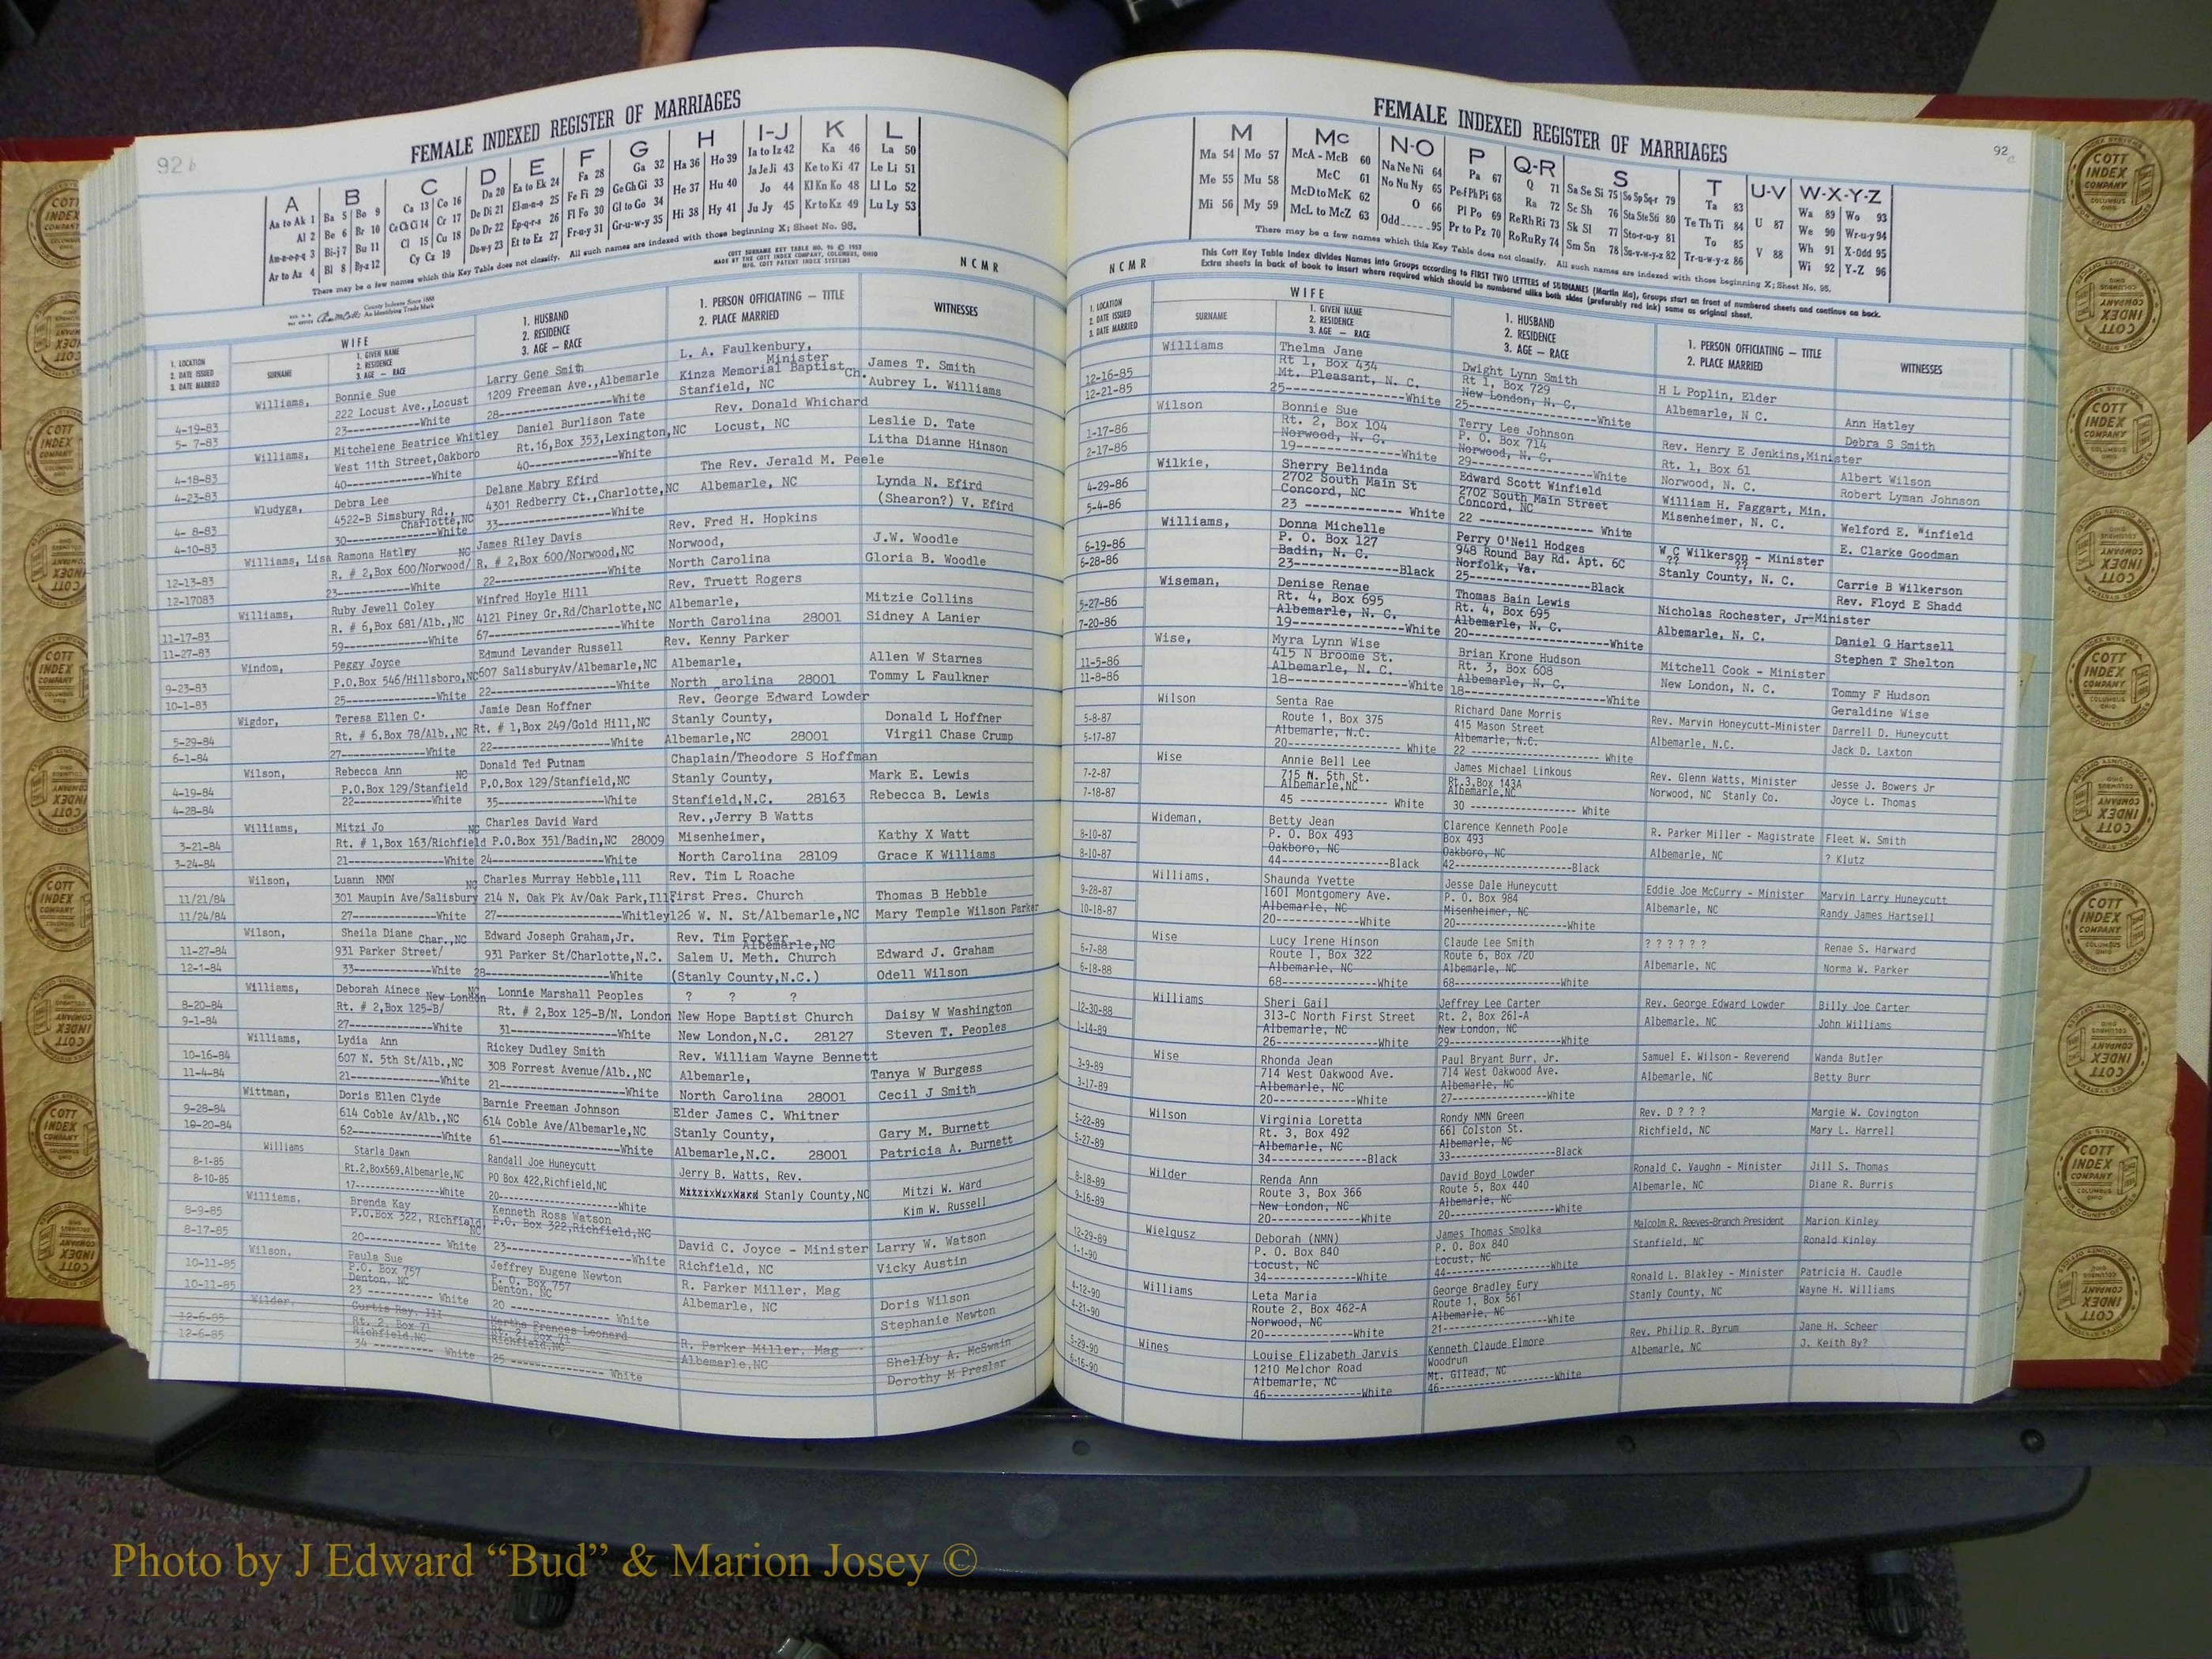 92b
FEMALE INDEXED REGISTER OF MARRIAGES
A B C D E F G H I-J K L
Aa to Ak 1 Ba 5 Bo 9 Ca 13 Co 16 Da 20 Ea to Ek 24 Fa 28 Ga 32 Ha 36 Ho 39 Ia to Iz 42 Ka 46 La 50
Al 2 Be 6 Br 10 Ce Ch Ci 14 Cr 17 De Di 21 El-m-n-o 25 Fe Fi 29 Ge Gh Gi 33 He 37 Hu 40 Ja Je Ji 43 Ke to Ki 47 Le Li 51
Am-n-o-p-q 3 Bi-j 7 Bu 11 Cl 15 Cu 18 Do Dr 22 Ep-q-r-s 26 Fl Fo 30 Gl to Go 34 Hi 38 Hy 41 Jo 44 Kl Kn Ko 48 Ll Lo 52
Ar to Az 4 Bl 8 By-z 12 Cy Cz 19 Du-w-y 23 Et to Ez 27 Fr-u-y 31 Gr-u-w-y 35 Ju Jy 45 Kr to Kz 49 Lu Ly 53
There may be a few names which this Key Table does not classify. All such names are indexed with those beginning X; Sheet No. 95.
County Indexes Since 1888
An Identifying Trade Mark
COTT SURNAME KEY TABLE NO. 96 © 1952
MADE BY THE COTT INDEX COMPANY, COLUMBUS, OHIO
MFG. COTT PATENT INDEX SYSTEMS
N C M R
1. LOCATION
2. DATE ISSUED
3. DATE MARRIED
WIFE
SURNAME
1. GIVEN NAME
2. RESIDENCE
3. AGE — RACE
1. HUSBAND
2. RESIDENCE
3. AGE — RACE
1. PERSON OFFICIATING — TITLE
2. PLACE MARRIED
WITNESSES
Williams, Bonnie Sue Larry Gene Smith L. A. Faulkenbury, Minister James T. Smith
4-19-83 222 Locust Ave.,Locust 1209 Freeman Ave.,Albemarle Kinza Memorial Baptist Ch. Aubrey L. Williams
5- 7-83 23------------White 28----------------White Stanfield, NC
Williams, Mitchelene Beatrice Whitley Daniel Burlison Tate Rev. Donald Whichard Leslie D. Tate
4-18-83 West 11th Street,Oakboro Rt.16,Box 353,Lexington,NC Locust, NC Litha Dianne Hinson
4-23-83 40------------White 40----------------White
Wludyga, Debra Lee Delane Mabry Efird The Rev. Jerald M. Peele Lynda N. Efird
4- 8-83 4522-B Simsbury Rd., Charlotte,NC 4301 Redberry Ct.,Charlotte,NC Albemarle, NC (Shearon?) V. Efird
4-10-83 30------------White 33----------------White
Williams, Lisa Ramona Hatley James Riley Davis Rev. Fred H. Hopkins J.W. Woodle
12-13-83 R. # 2,Box 600/Norwood/ NC R. # 2,Box 600/Norwood,NC Norwood, Gloria B. Woodle
12-17083 23------------White 22----------------White North Carolina
Williams, Ruby Jewell Coley Winfred Hoyle Hill Rev. Truett Rogers Mitzie Collins
11-17-83 R. # 6,Box 681/Alb.,NC 4121 Piney Gr.Rd/Charlotte,NC Albemarle, Sidney A Lanier
11-27-83 59------------White 67----------------White North Carolina 28001
Windom, Peggy Joyce Edmund Levander Russell Rev. Kenny Parker Allen W Starnes
9-23-83 P.O.Box 546/Hillsboro,NC 607 SalisburyAv/Albemarle,NC Albemarle, Tommy L Faulkner
10-1-83 25------------White 22----------------White North arolina 28001
Wigdor, Teresa Ellen C. Jamie Dean Hoffner Rev. George Edward Lowder Donald L Hoffner
5-29-84 Rt. # 6.Box 78/Alb.,NC Rt. # 1,Box 249/Gold Hill,NC Stanly County, Virgil Chase Crump
6-1-84 27------------White 22----------------White Albemarle,NC 28001
Wilson, Rebecca Ann Donald Ted Putnam Chaplain/Theodore S Hoffman Mark E. Lewis
4-19-84 P.O.Box 129/Stanfield NC P.O.Box 129/Stanfield,NC Stanly County, Rebecca B. Lewis
4-28-84 22------------White 35----------------White Stanfield,N.C. 28163
Williams, Mitzi Jo Charles David Ward Rev.,Jerry B Watts Kathy X Watt
3-21-84 Rt. # 1,Box 163/Richfield NC P.O.Box 351/Badin,NC 28009 Misenheimer, Grace K Williams
3-24-84 21------------White 24----------------White North Carolina 28109
Wilson, Luann NMN Charles Murray Hebble,111 Rev. Tim L Roache Thomas B Hebble
11/21/84 301 Maupin Ave/Salisbury NC 214 N. Oak Pk Av/Oak Park,Ill. First Pres. Church Mary Temple Wilson Parker
11/24/84 27------------White 27----------------Whitley 126 W. N. St/Albemarle,NC
Wilson, Sheila Diane Edward Joseph Graham,Jr. Rev. Tim Porter Edward J. Graham
11-27-84 931 Parker Street/ Char.,NC 931 Parker St/Charlotte,N.C. Salem U. Meth. Church Albemarle,NC Odell Wilson
12-1-84 33------------White 28----------------White (Stanly County,N.C.)
Williams, Deborah Ainece Lonnie Marshall Peoples ? ? ? Daisy W Washington
8-20-84 Rt. # 2,Box 125-B/ New London NC Rt. # 2,Box 125-B/N. London New Hope Baptist Church Steven T. Peoples
9-1-84 27------------White 31----------------White New London,N.C. 28127
Williams, Lydia Ann Rickey Dudley Smith Rev. William Wayne Bennett Tanya W Burgess
10-16-84 607 N. 5th St/Alb.,NC 308 Forrest Avenue/Alb.,NC Albemarle, Cecil J Smith
11-4-84 21------------White 21----------------White North Carolina 28001
Wittman, Doris Ellen Clyde Barnie Freeman Johnson Elder James C. Whitner Gary M. Burnett
9-28-84 614 Coble Av/Alb.,NC 614 Coble Ave/Albemarle,NC Stanly County, Patricia A. Burnett
10-20-84 62------------White 61----------------White Albemarle,N.C. 28001
Williams Starla Dawn Randall Joe Huneycutt Jerry B. Watts, Rev. Mitzi W. Ward
8-1-85 Rt.2,Box569,Albemarle,NC PO Box 422,Richfield,NC Stanly County,NC Kim W. Russell
8-10-85 17------------White 20----------------White
Williams, Brenda Kay Kenneth Ross Watson David C. Joyce - Minister Larry W. Watson
8-9-85 P.O.Box 322, Richfield, NC P.O. Box 322,Richfield,NC Richfield, NC Vicky Austin
8-17-85 20------------ White 23----------------White
Wilson, Paula Sue Jeffrey Eugene Newton R. Parker Miller, Mag Doris Wilson
10-11-85 P.O. Box 757 P. O. Box 757 Albemarle, NC Stephanie Newton
10-11-85 Denton, NC Denton, NC
23 ---------- White 20 ---------------- White
Wilder, Curtis Ray, III Martha Frances Leonard R. Parker Miller, Mag Shelby A. McSwain
12-6-85 Rt. 2, Box 71 Rt. 2, Box 71 Albemarle,NC Dorothy M Presler
12-6-85 Richfield,NC Richfield,NC
34 ---------- White 25 ---------------- White
92c
FEMALE INDEXED REGISTER OF MARRIAGES
M Mc N-O P Q-R S T U-V W-X-Y-Z
Ma 54 Mo 57 McA - McB 60 Na Ne Ni 64 Pa 67 Q 71 Sa Se Si 75 So Sp Sq-r 79 Ta 83 Wa 89 Wo 93
Me 55 Mu 58 McC 61 No Nu Ny 65 Pe-f Ph Pi 68 Ra 72 Sc Sh 76 Sta Ste Sti 80 Te Th Ti 84 U 87 We 90 Wr-u-y 94
Mi 56 My 59 McD to McK 62 O 66 Pl Po 69 Re Rh Ri 73 Sk Sl 77 Sto-r-u-y 81 To 85 Wh 91 X-Odd 95
McL to McZ 63 Odd 95 Pr to Pz 70 Ro Ru Ry 74 Sm Sn 78 Su-v-w-y-z 82 Tr-u-w-y-z 86 V 88 Wi 92 Y-Z 96
There may be a few names which this Key Table does not classify. All such names are indexed with those beginning X; Sheet No. 95.
This Cott Key Table Index divides Names into Groups according to FIRST TWO LETTERS of SURNAMES (Martin Ma), Groups start on front of numbered sheets and continue on back.
Extra sheets in back of book to insert where required which should be numbered alike both sides (preferably red ink) same as original sheet.
N C M R
1. LOCATION
2. DATE ISSUED
3. DATE MARRIED
WIFE
SURNAME
1. GIVEN NAME
2. RESIDENCE
3. AGE — RACE
1. HUSBAND
2. RESIDENCE
3. AGE — RACE
1. PERSON OFFICIATING — TITLE
2. PLACE MARRIED
WITNESSES
Williams Thelma Jane Dwight Lynn Smith H L Poplin, Elder Ann Hatley
12-16-85 Rt 1, Box 434 Rt 1, Box 729 Albemarle, N C. Debra S Smith
12-21-85 Mt. Pleasant, N. C. New London, N. C.
25--------------White 25----------------White
Wilson Bonnie Sue Terry Lee Johnson Rev. Henry E Jenkins,Minister Albert Wilson
1-17-86 Rt. 2, Box 104 P. O. Box 714 Rt. 1, Box 61 Robert Lyman Johnson
2-17-86 Norwood, N. C. Norwood, N. C. Norwood, N. C.
19--------------White 29----------------White
Wilkie, Sherry Belinda Edward Scott Winfield William H. Faggart, Min. Welford E. Winfield
4-29-86 2702 South Main St 2702 South Main Street Misenheimer, N. C. E. Clarke Goodman
5-4-86 Concord, NC Concord, NC
23 ------------ White 22 ---------------- White
Williams, Donna Michelle Perry O'Neil Hodges W C Wilkerson - Minister Carrie B Wilkerson
6-19-86 P. O. Box 127 948 Round Bay Rd. Apt. 6C ?? ?? Rev. Floyd E Shadd
6-28-86 Badin, N. C. Norfolk, Va. Stanly County, N. C.
23--------------Black 25----------------Black
Wiseman, Denise Renae Thomas Bain Lewis Nicholas Rochester, Jr-Minister Daniel G Hartsell
5-27-86 Rt. 4, Box 695 Rt. 4, Box 695 Albemarle, N. C. Stephen T Shelton
7-20-86 Albemarle, N. C. Albemarle, N. C.
19--------------White 20----------------White
Wise, Myra Lynn Wise Brian Krone Hudson Mitchell Cook - Minister Tommy F Hudson
11-5-86 415 N Broome St. Rt. 3, Box 608 New London, N. C. Geraldine Wise
11-8-86 Albemarle, N. C. Albemarle, N. C.
18--------------White 18----------------White
Wilson Senta Rae Richard Dane Morris Rev. Marvin Honeycutt-Minister Darrell D. Huneycutt
5-8-87 Route 1, Box 375 415 Mason Street Albemarle, N.C. Jack D. Laxton
5-17-87 Albemarle, N.C. Albemarle, N.C.
20-------------- White 22 ---------------- White
Wise Annie Bell Lee James Michael Linkous Rev. Glenn Watts, Minister Jesse J. Bowers Jr
7-2-87 715 N. 5th St. Rt.3,Box 143A Norwood, NC Stanly Co. Joyce L. Thomas
7-18-87 Albemarle,NC Albemarle,NC
45 ------------ White 30 ---------------- White
Wideman, Betty Jean Clarence Kenneth Poole R. Parker Miller - Magistrate Fleet W. Smith
8-10-87 P. O. Box 493 Box 493 Albemarle, NC ? Klutz
8-10-87 Oakboro, NC Oakboro, NC
44--------------Black 42----------------Black
Williams, Shaunda Yvette Jesse Dale Huneycutt Eddie Joe McCurry - Minister Marvin Larry Huneycutt
9-28-87 1601 Montgomery Ave. P. O. Box 984 Albemarle, NC Randy James Hartsell
10-18-87 Albemarle, NC Misenheimer, NC
20--------------White 20----------------White
Wise Lucy Irene Hinson Claude Lee Smith ? ? ? ? ? ? Renae S. Harward
6-7-88 Route 1, Box 322 Route 6, Box 720 Albemarle, NC Norma W. Parker
6-18-88 Albemarle, NC Albemarle, NC
68--------------White 68----------------White
Williams Sheri Gail Jeffrey Lee Carter Rev. George Edward Lowder Billy Joe Carter
12-30-88 313-C North First Street Rt. 2, Box 261-A Albemarle, NC John Williams
1-14-89 Albemarle, NC New London, NC
26--------------White 29----------------White
Wise Rhonda Jean Paul Bryant Burr, Jr. Samuel E. Wilson - Reverend Wanda Butler
3-9-89 714 West Oakwood Ave. 714 West Oakwood Ave. Albemarle, NC Betty Burr
3-17-89 Albemarle, NC Albemarle, NC
20--------------White 27----------------White
Wilson Virginia Loretta Rondy NMN Green Rev. D ? ? ? Margie W. Covington
5-22-89 Rt. 3, Box 492 661 Colston St. Richfield, NC Mary L. Harrell
5-27-89 Albemarle, NC Albemarle, NC
34--------------Black 33----------------Black
Wilder Renda Ann David Boyd Lowder Ronald C. Vaughn - Minister Jill S. Thomas
8-18-89 Route 3, Box 366 Route 5, Box 440 Albemarle, NC Diane R. Burris
9-16-89 New London, NC Albemarle, NC
20--------------White 20----------------White
Wielgusz Deborah (NMN) James Thomas Smolka Malcolm R. Reeves-Branch President Marion Kinley
12-29-89 P. O. Box 840 P. O. Box 840 Stanfield, NC Ronald Kinley
1-1-90 Locust, NC Locust, NC
34--------------White 44----------------White
Williams Leta Maria George Bradley Eury Ronald L. Blakley - Minister Patricia H. Caudle
4-12-90 Route 2, Box 462-A Route 1, Box 561 Stanly County, NC Wayne H. Williams
4-21-90 Norwood, NC Albemarle, NC
20--------------White 21----------------White
Wines Louise Elizabeth Jarvis Kenneth Claude Elmore Rev. Philip R. Byrum Jane H. Scheer
5-29-90 1210 Melchor Road Woodrun Albemarle, NC J. Keith By?
6-16-90 Albemarle, NC Mt. Gilead, NC
46--------------White 46----------------White
COTT
INDEX
COMPANY
COLUMBUS
OHIO
Photo by J Edward “Bud” & Marion Josey ©